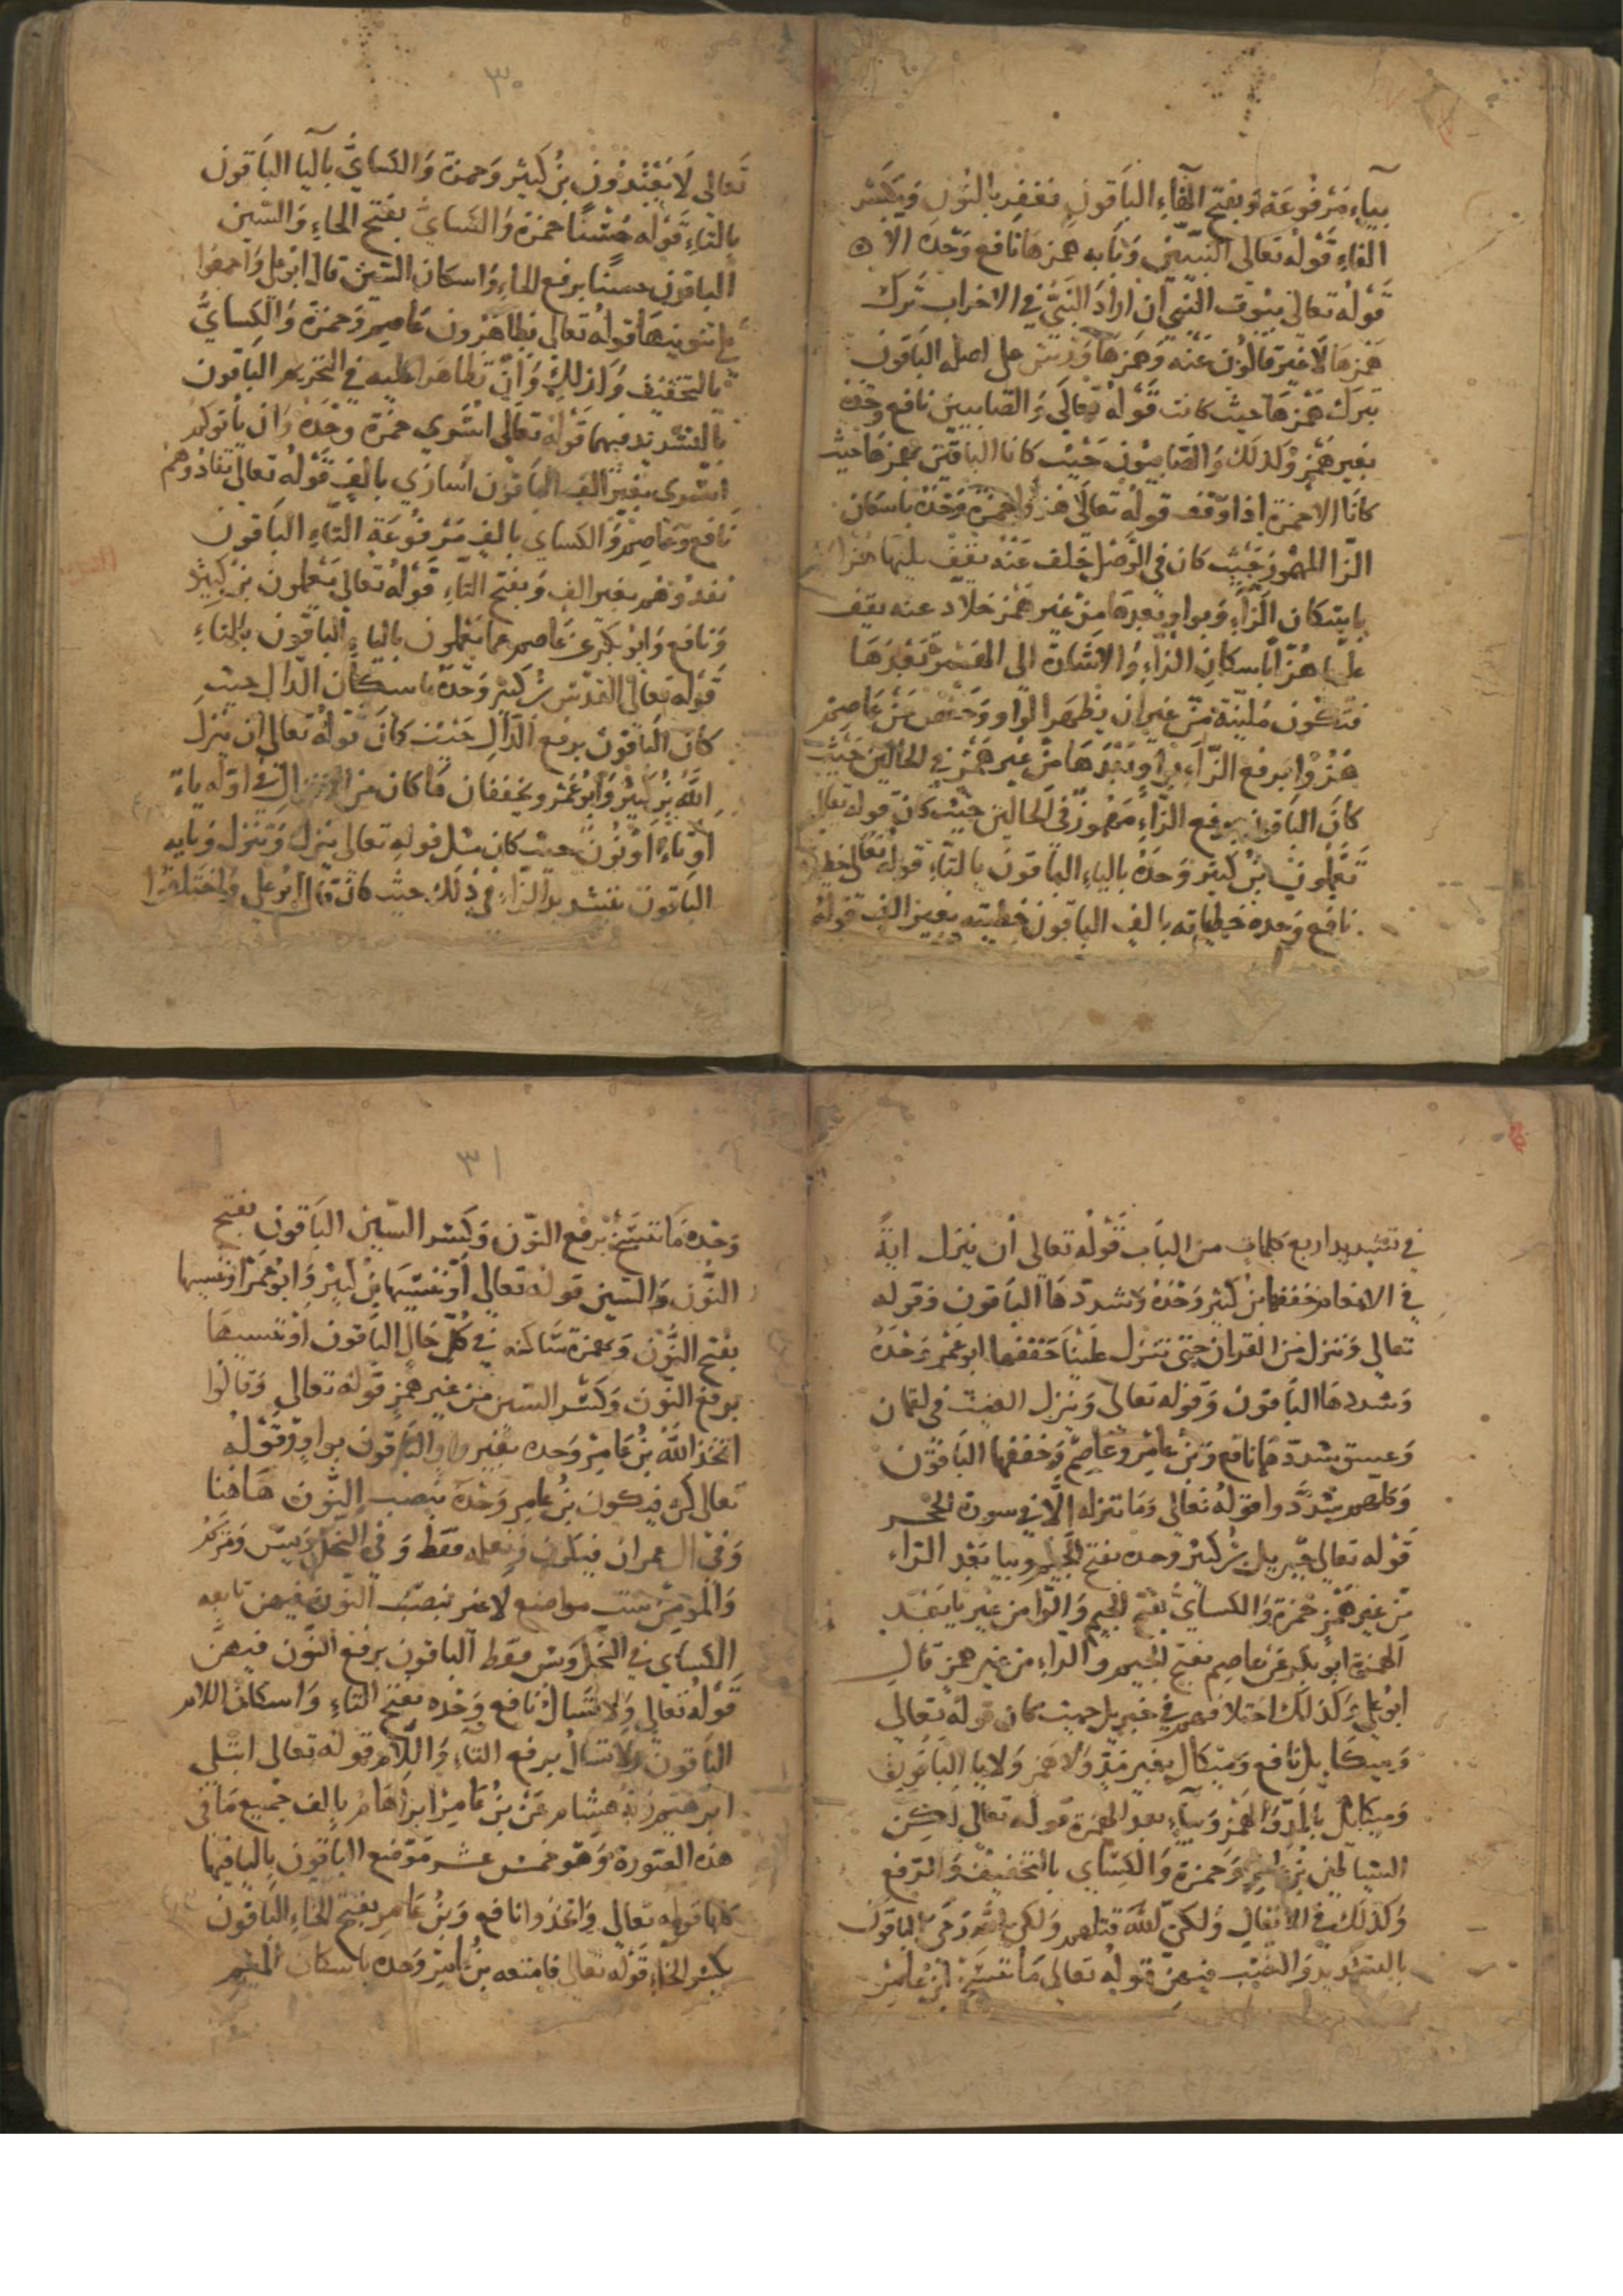 بياء مرفوعة وبفتح الفاء الباقون نغفر بالنون وبكسر
الفاء قوله تعالى النبيين وبابه همزها نافع وحده الا
قوله تعالى بيوت النبي ان اراد النبي في الاحزاب ترك
همزها لا غير قالون عنه وهمزها ورش على اصله الباقون
بترك همزها حيث كانت قوله تعالى والصابيين نافع وحده
بغير همز وكذلك والصابيون حيث كانا الباقين بهمزها حيث
كانا الا حمزة اذا وقف قوله تعالى هزوا حمزة وحده باسكان
الزا المهموز حيث كان في الوصل خلف عنه يقف يليها هزا
باسكان الزاء وبواو بعدها من غير همز خلاد عنه يقف
على هزا باسكان الزاء والاشارة الى الهمز بعدها
فتكون ملينة من غير ان يظهر الواو وحفص عن عاصم
هزوا برفع الزاء بواو بعدها من غير همز في الحالين حيث
كان الباقون برفع الزاء مهموز في الحالين حيث كان قوله تعالى
تعملون بن كثير وحده بالياء الباقون بالتاء قوله تعالى
نافع وحده خطياته بالف الباقون خطيته بغير الف قوله
٣٠
تعالى لا يعبدون بن كثير وحمزة والكساي باليا الباقون
بالتاء قوله حسنا حمزة والكساي بفتح الحاء والسين
الباقون حسنا برفع الحاء واسكان السين قال ابو علي واجمعوا
على تنوينها قوله تعالى تظاهرون عاصم وحمزة والكساي
بالتخفيف وكذلك وان تظاهرا عليه في التحريم الباقون
بالتشديد فيهما قوله تعالى اسرى حمزة وحده وان ياتوكم
اسرى بغير الف الباقون اسارى بالف قوله تعالى تفادوهم
نافع وعاصم والكساي بالف مرفوعة التاء الباقون
تفدوهم بغير الف وبفتح التاء قوله تعالى يعملون بن كثير
ونافع وابو بكر عن عاصم عما يعملون بالياء الباقون بالتاء
قوله تعالى القدس بن كثير وحده باسكان الدال حيث
كان الباقون برفع الدال حيث كان قوله تعالى ان ينزل
الله بن كثير وابو عمرو يخففان ما كان من الذي اوله ياء
او تاء او نون حيث كان مثل قوله تعالى ينزل وتنزل وبابه
الباقون بتشديد الزاء في ذلك حيث كان قال ابو علي واختلفوا
في تشديد اربع كلمات من الباب قوله تعالى ان ينزل اية
في الانعام خففها بن كثير وحده وشددها الباقون وقوله
تعالى وننزل من القران حتى تنزل علينا خففها ابو عمرو وحده
وشددها الباقون وقوله تعالى وينزل الغيث في لقمان
وعسق شددهما نافع وبن عامر وعاصم وخففها الباقون
وكلهم شددوا قوله تعالى وما ننزله الا في سورة الحجر
قوله تعالى جبريل بن كثير وحده بفتح الجيم وبيا بعد الراء
من غير همز حمزة والكساي بفتح الجيم والرا من غير يا بعد
الهمزة ابو بكر عن عاصم بفتح الجيم والراء من غير همز قال
ابو علي وكذلك اختلافهم في جبريل حيث كان قوله تعالى
وميكايل نافع وميكال بغير مد ولا همز ولا يا الباقون
وميكائل بالمد والهمز وبياء بعد الهمزة قوله تعالى لكن
الشياطين بن عامر وحمزة والكساي بالتخفيف والرفع
وكذلك في الانفال ولكن الله قتلهم ولكن الله رمى الباقون
بالتشديد والنصب فيهن قوله تعالى ما ننسخ بن عامر
٣١
وحده ما ننسخ برفع النون وكسر السين الباقون بفتح
النون والسين قوله تعالى او ننسها بن كثير وابو عمرو اوننسها
بفتح النون وبهمزة ساكنه في كل حال الباقون اوننسها
برفع النون وكسر السين من غير همز قوله تعالى وقالوا
اتخذ الله بن عامر وحده بغير واو الباقون بواو وقوله
تعالى كن فيكون بن عامر وحده بنصب النون هاهنا
وفي ال عمران فيكون ونعلمه فقط وفي النحل ويس ومريم
والمومن ست مواضع لا غير بنصب النون فيهن تابعه
الكساي في النحل ويس فقط الباقون برفع النون فيهن
قوله تعالى ولا تسال نافع وحده بفتح التاء واسكان اللام
الباقون ولا تسال برفع التاء واللام قوله تعالى ابتلى
ابرهيم ربه هشام عن بن عامر ابراهام بالف جميع ما في
هذه السورة وهو خمس عشر موضع الباقون باليا فيها
كلها قوله تعالى واتخذوا نافع وبن عامر بفتح الخاء الباقون
بكسر الخاء قوله تعالى فامتعه بن عامر وحده باسكان الميم